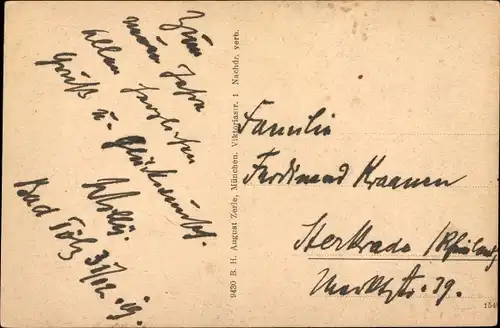 Zum
neuen Jahre
allen herzlichen
Gruß u. Glückwunsch.
Willy.
Bad Tölz 31/12.19.
9430 B. H. August Zerle, München. Viktoriastr. 1 Nachdr. verb.
Familie
Ferdinand Kraanen
Sterkrade /Rheinland
Marktstr. 39.